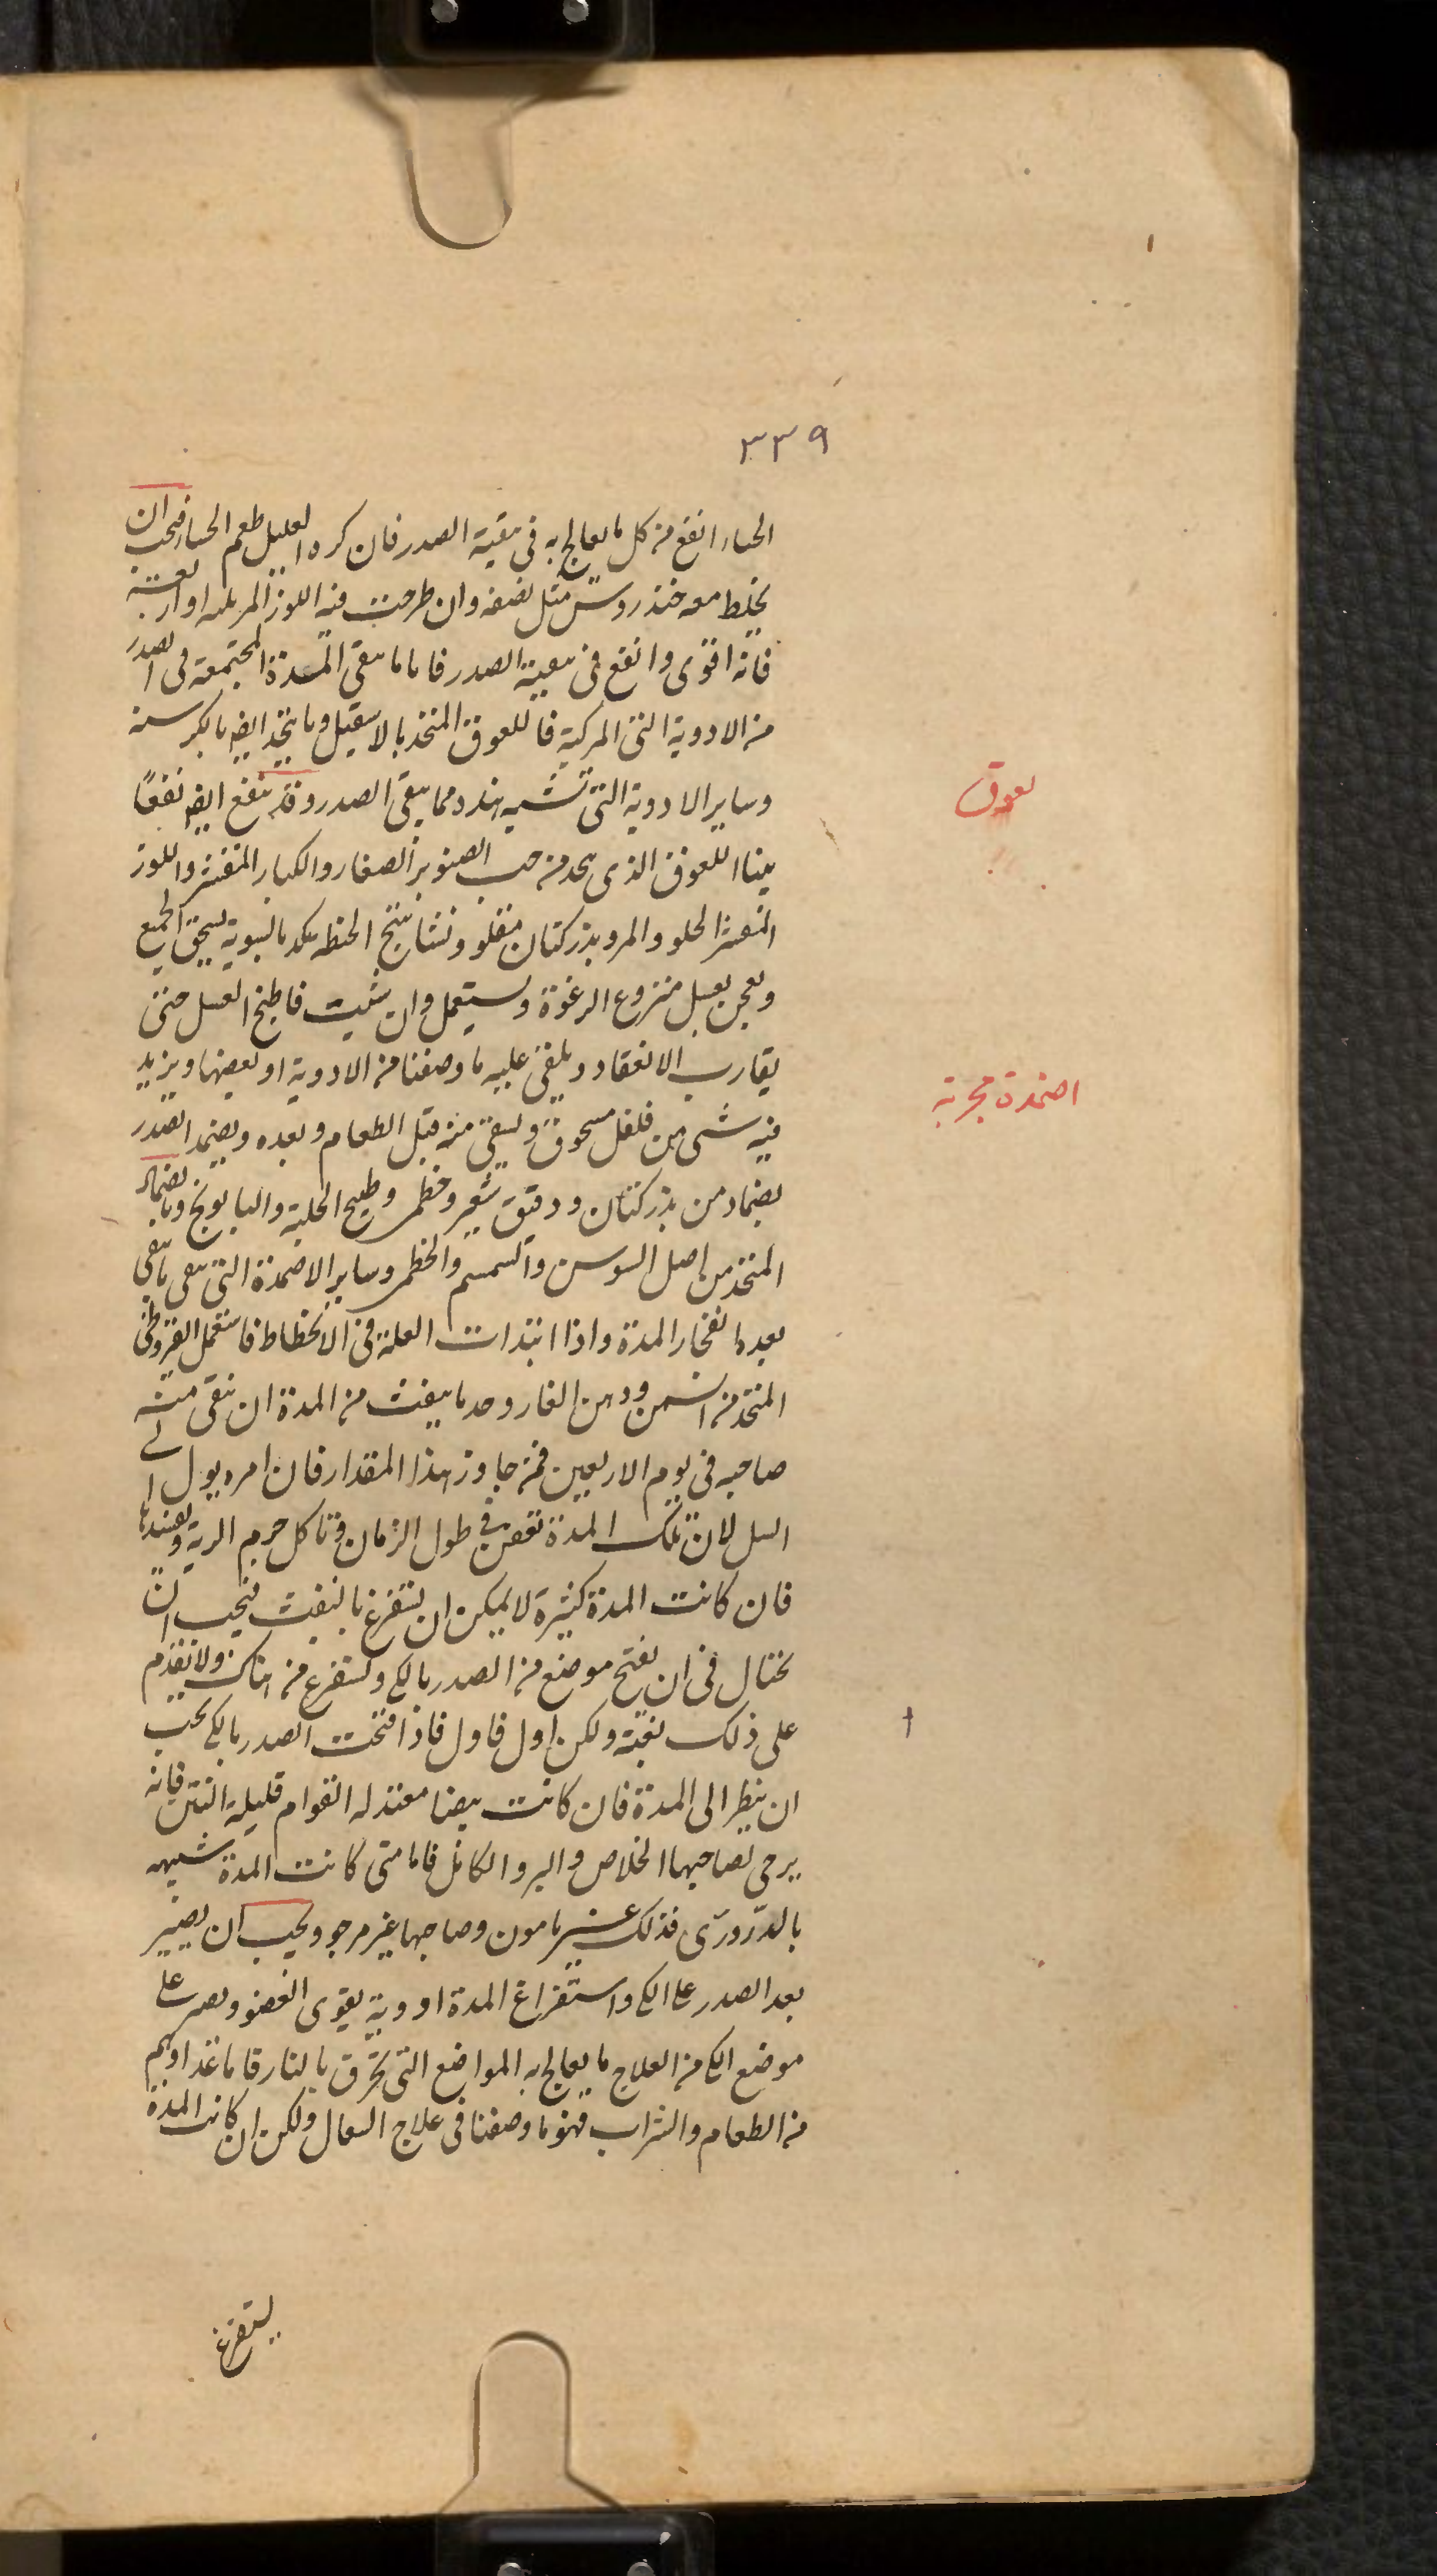 ٣٣٩
الحساء انفع من كل ما يعالج به فى تنقية الصدر فان كره العليل طعم الحساء فيجب ان
يخلط معه خندروس مثل نصفه وان طرحت فيه اللوز المر ثلثه او اربعة
فانه اقوى وانفع فى تنقية الصدر فاما ما ينقى المدة المجتمعة فى الصدر
من الادوية التى المركبة فاللعوق المتخذ بالاسقيل وما يتخذ ايضا بالكرسنة
وساير الادوية التى تشبه هذه مما ينقى الصدر وقد ينفع ايضا نفعًا
بينا اللعوق الذى يتخذ من حب الصنوبر الصغار والكبار المقشر واللوز
المقشر الحلو والمر وبزر كتان مقلو ونشاستج الحنطة بالسوية يسحق الجميع
ويعجن بعسل منزوع الرغوة ويستعمل وان شيت فاطبخ العسل حتى
يقارب الانعقاد ويلقى عليه ما وصفنا من الادوية او بعضها ويزيد
فيه شى من فلفل مسحوق ويسقى منه قبل الطعام وبعده ويضمد الصدر
بضماد من بزر كتان ودقيق شعير وخطمى وطبيخ الحلبة والبابونج وبالضماد
المتخذ من اصل السوسن والسمسم والخطمى وساير الاضمدة التى تنقى ما بقى
بعد انفجار المدة واذا ابتدات العلة فى الانحطاط فاستعمل القيروطى
المتخذ من السمن ودهن الغار وحد ما ينفث من المدة ان ينقى منه
صاحبه فى يوم الاربعين فمن جاوز هذا المقدار فان امره يول الى
السل لان تلك المدة تعفن فى طول الزمان وتاكل جرم الرية وتفسدها
فان كانت المدة كثيرة لا يمكن ان تستفرغ بالنفث فيجب ان
تحتال فى ان يفتح موضع من الصدر بالكى وتستفرغ من هناك ولا تقدم
على ذلك بغتة ولكن اول فاول فاذا فتحت الصدر بالكى يجب
ان ينظر الى المدة فان كانت بيضا معتدلة القوام قليلة النتن فانه
يرجى لصاحبها الخلاص والبرو الكامل فاما متى كانت المدة شبيهه
بالدّردىّ فذلك غير مامون وصاحبها غير مرجو ويجب ان يصير
بعد الصدر على الكى واستفراغ المدة ادوية يقوى العضو ويصير على
موضع الكى من العلاج ما يعالج به المواضع التى تحرق بالنار فاما غذاوهم
من الطعام والشراب فهو ما وصفنا فى علاج السعال ولكن ان كانت المدة
يستفرغ
لعوق
اضمدة مجربة